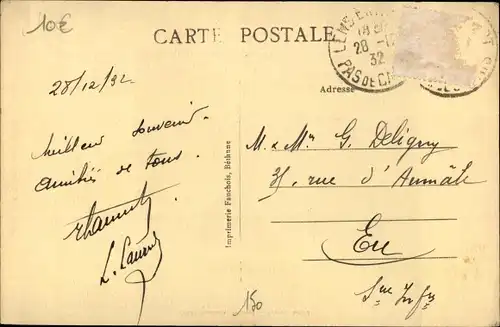 10€
CARTE POSTALE
LENS
28 -12
32
PAS DE CA
Adresse
28/12/32
Meilleur Souvenir.
Amitiés de tous.
L. Laurent
Imprimerie Fauchois, Béthune
M. & Mme G. Deligny
35, rue d'Aumâle
Eu
Sne Infre
150